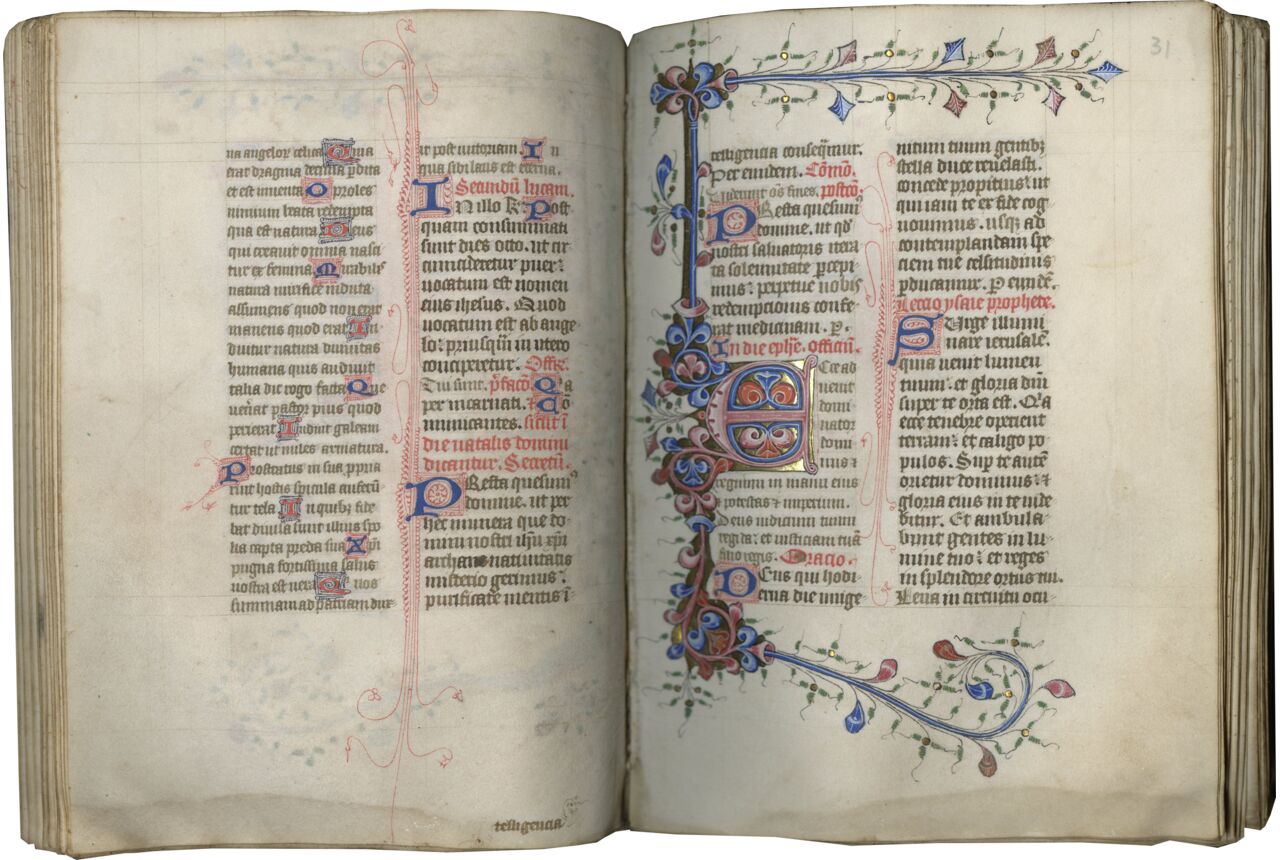 na angelorͮ celica Quia
erat dragma decima ꝑdita
et est inuenta O proles
nimium beata redempta
qua est natura Deus
qui creauit omnia nasci
tur ex femina Mirabil'
natura mirifice induta
assumens quod non erat
manens quod erat In
duitur natura diuinitas
humana quis audiuit
talia dic rogo facta Que
perierat Induit galeam
certat ut miles armatura.
Prostratus in sua ꝓpria
ruit hostis spicula auferū
tur tela. In quibꝫ fide
bat diuisa sunt illius spo
lia capta preda sua Xp̄i
pugna fortissima salus
nostra est uera Qui nos
suum ad patriam dux
it post uictoriam In
qua sibi laus est eterna.
Secundū lucam.
In illo Post
quam consummati
sunt dies octo. ut cir
cumcideretur puer:
uocatum est nomen
eius ihesus. Quod
uocatum est ab ange
lo: priusq̄m in utero
conciperetur. Offer.
Tui sunt. p̄faco. Q̄a
per incarnati. Cō
municantes. sicut ī
die natalis domini
dicantur. Secretū.
PResta quesum9
domine. ut per
hec munera que do
mini nostri ih̄u xp̄i
archane natiuitatis
misterio gerimus:
purificate mentis ī
telligencia
31
telligencia conseq̄mur.
Per eundem. Cōmo.
Uiderunt os̄ fines. postcō.
PResta quesum9
domine. ut qd̄
nostri saluatoris itera
ta solennitate ꝑcepi
mus: perpetue nobis
redempcionis confe
rat medicinam. P.
In die eph̄e. officiū.
ECce ad
uenit
domi
nator
domi
nus:
regnum in manu eius
potestas et imperium.
Deus iudicium tuum
regi da: et iusticiam tuā
filio regis. Oracio.
DEus qui hodi
erna die unige
nitum tuum gentibꝫ
stella duce reuelasti.
concede propitius: ut
qui iam te ex fide cog
nouimus. usqꝫ ad
contemplandam spe
ciem tue celsitudinis
ꝑducamur. P eundē.
Leccio ysaie prophete.
SUrge illumi
nare ierusalē.
quia uenit lumen
tuum. et gloria dn̄i
super te orta est. Q̄a
ecce tenebre operient
terram: et caligo po
pulos. Suꝑ te autē
orietur dominus: et
gloria eius in te uide
bitur. Et ambula
bunt gentes in lu
mine tuo: et reges
in splendore ortus tui.
Leua in circuitu ocu